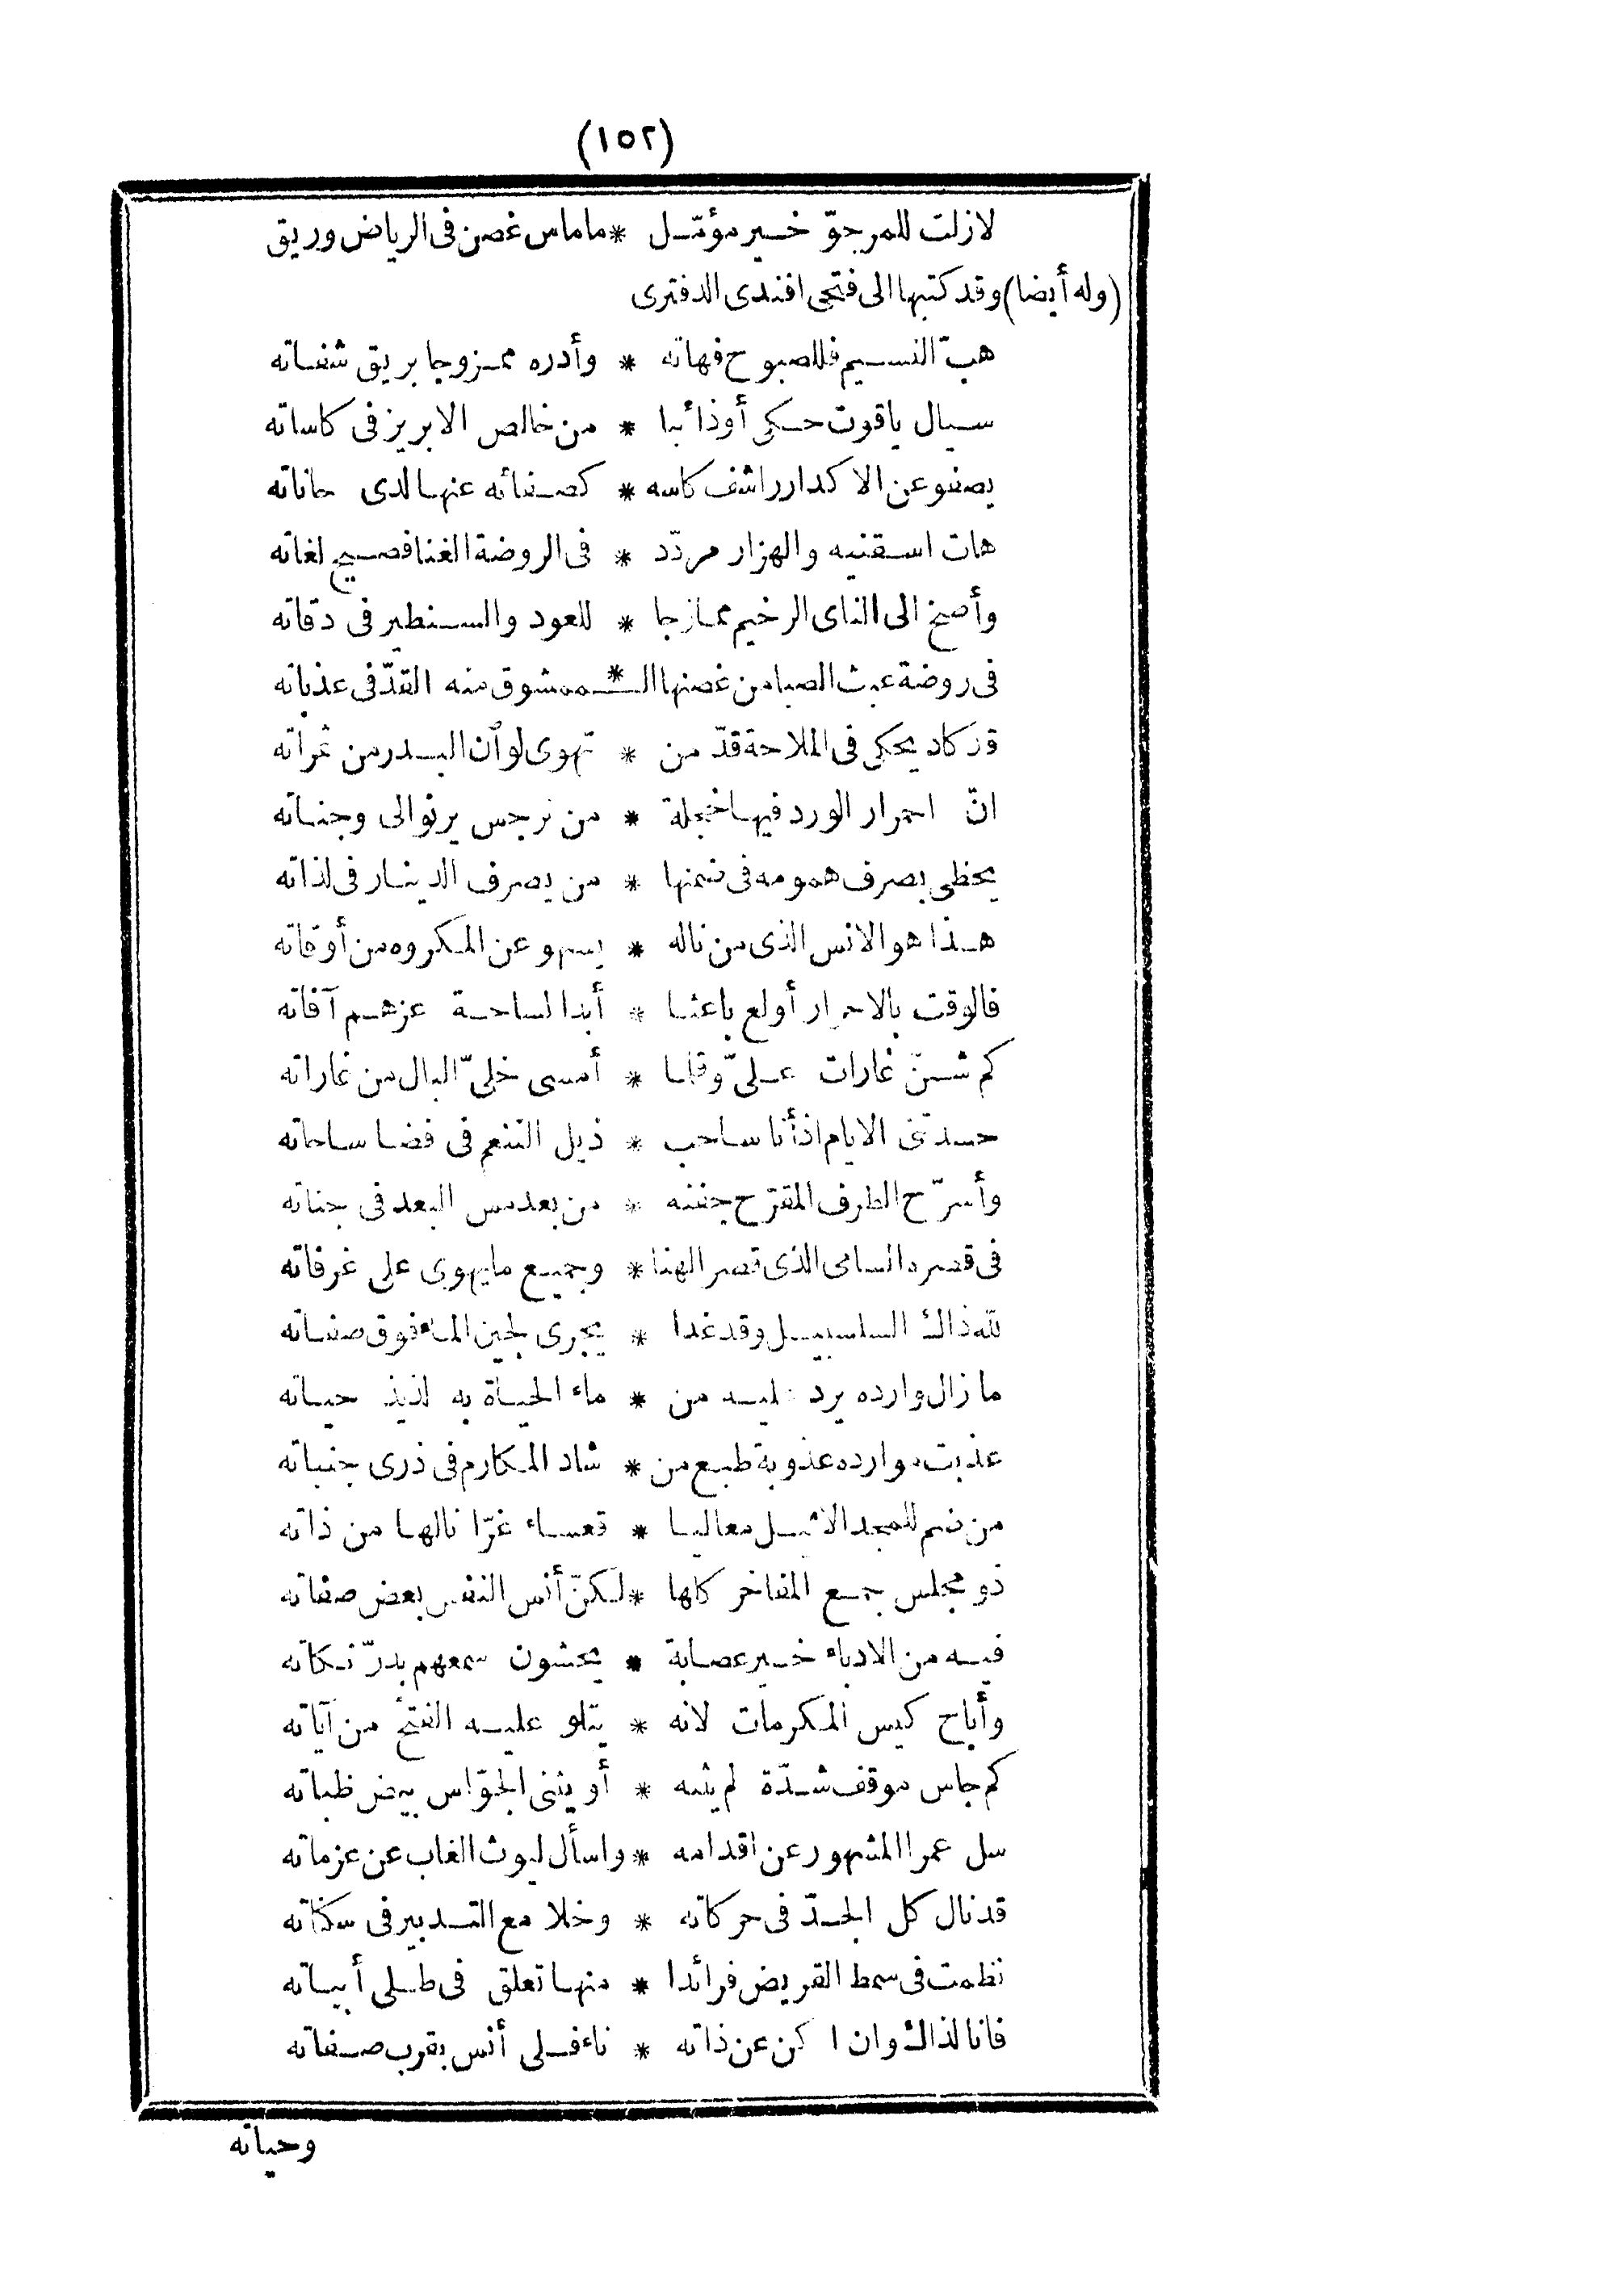 (١٥٢)
لازلت للمرجوّ خير مؤمّل * ماماس غصن فى الرياض وريق
(وله أيضا) وقد كتبها الى فتحى افندى الدفترى
هبّ النسيم فللصبوح فهاته * وأدره ممزوجا بريق شفاته
سيال ياقوت حكى أوذائبا * من خالص الابريز فى كاساته
يصفو عن الاكدار راشف كاسه * كصفائه عنها لدى حاناته
هات اسقنيه والهزار مردّد * فى الروضة الغنا فصيح لغاته
وأصخ الى الناى الرخيم ممازجا * للعود والسنطير فى دقاته
فى روضة عبث الصبا من غصنها الـ * ـممشوق منه القدّ فى عذباته
قد كاد يحكى فى الملاحة قدّ من * تهوى لو أن البدر من ثمراته
انّ احمرار الورد فيها خجلة * من نرجس يرنو الى وجناته
يحظى بصرف همومه فى ضمنها * من يصرف الدينار فى لذاته
هذا هو الانس الذى من ناله * يسهو عن المكروه من أوقاته
فالوقت بالاحرار أولع باعثا * أبدا لساحة عزهم آفاته
كم شنّ غارات علىّ وقلما * أمسى خلىّ البال من غاراته
حسدتنى الايام اذ أنا ساحب * ذيل التنعم فى فضا ساحاته
وأسرّح الطرف المقرّح جفنه * من بعد مس البعد فى جناته
فى قصره السامى الذى قصر الهنا * وجميع مايهوى على غرفاته
لله ذاك السلسبيل وقد غدا * يجرى لجين الماء فوق صفاته
ما زال وارده يرد عليه من * ماء الحياة به لذيذ حياته
عذبت موارده عذوبة طبع من * شاد المكارم فى ذرى جنباته
من ضم للمجد الاثيل معاليا * قعساء غرّا نالها من ذاته
ذو مجلس جمع المفاخر كلها * لكنّ أنس النفس بعض صفاته
فيه من الادباء خير عصابة * يحشون سمعهم بدرّ نكاته
وأباح كيس المكرمات لانه * يتلو عليه الفتح من آياته
كم جاس موقف شدّة لم يثنه * أو يثنى الجوّاس بيض ظباته
سل عمرا المشهور عن اقدامه * واسأل ليوث الغاب عن عزماته
قد نال كل الجدّ فى حركاته * وخلا مع التدبير فى سكناته
نظمت فى سمط القريض فرائدا * منها تعلق فى طلى أبياته
فانا لذاك وان اكن عن ذاته * ناء فلى أنس بقرب صفاته
وحياته